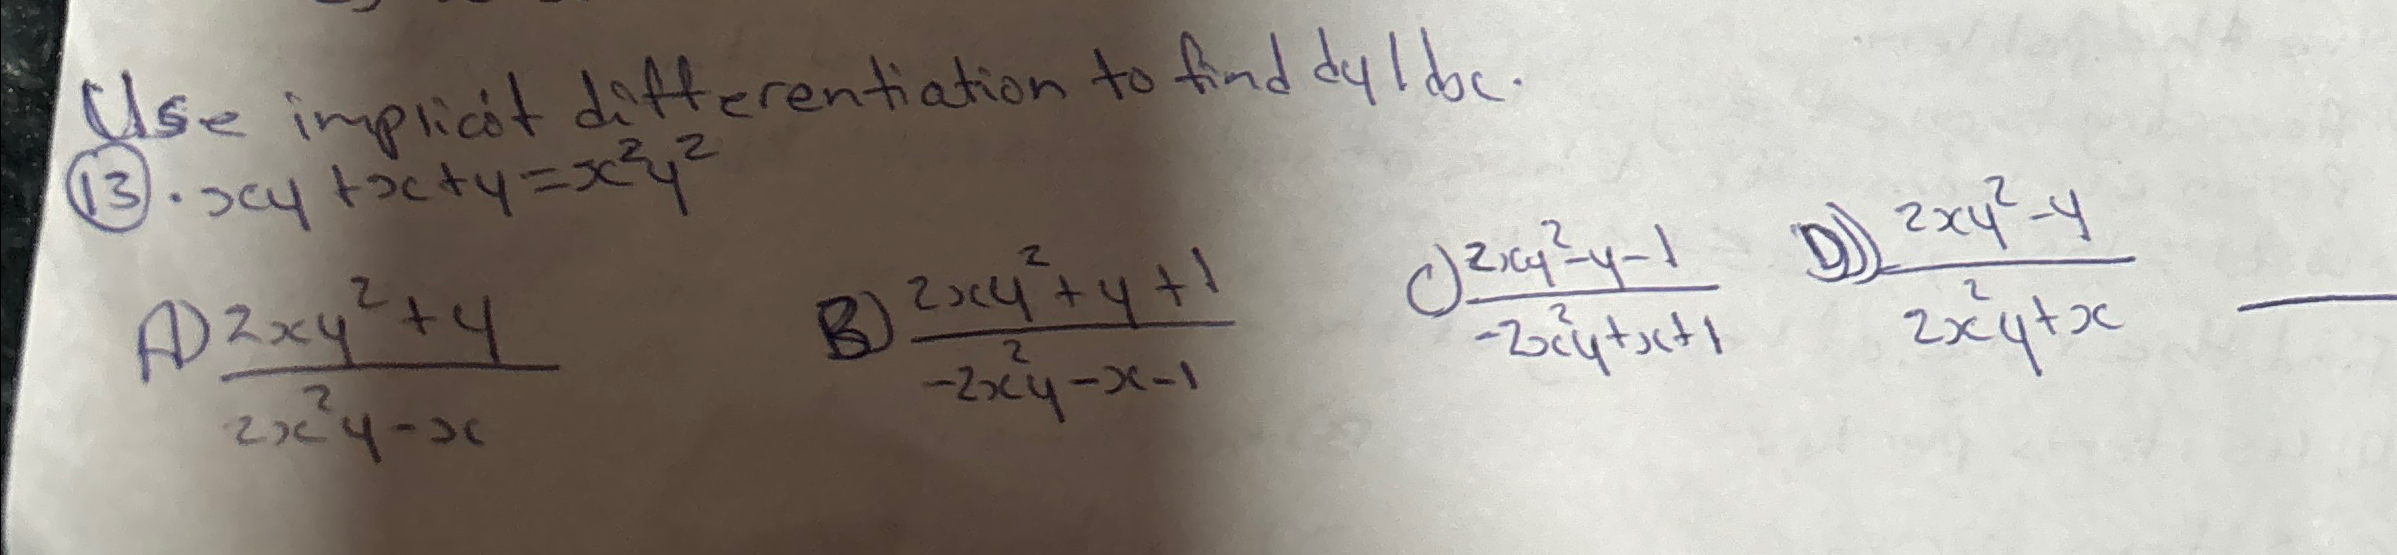 Use implicit differentiation to find dy/dx.
(13). xy + x + y = x²y²
A) (2xy² + y)/(2x²y - x) B) (2xy² + y + 1)/(-2x²y - x - 1) C) (2xy² - y - 1)/(-2x²y + x + 1) D) (2xy² - y)/(2x²y + x)